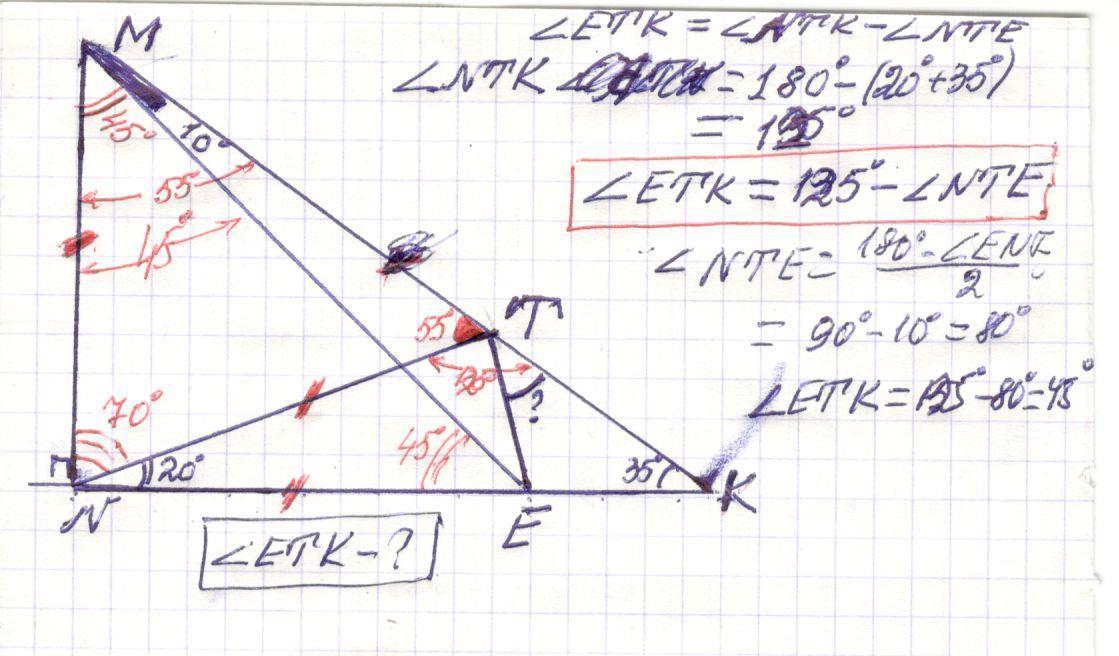 ∠ETK = ∠NTK - ∠NTE
∠NTK = 180° - (20° + 35°)
= 125°
∠ETK = 125° - ∠NTE
∠NTE = (180° - ∠ENE)/2
= 90° - 10° = 80°
∠ETK = 125° - 80° = 45°
M
45°
10°
55°
45°
T
55°
?
70°
45°
20°
35°
N
E
K
∠ETK - ?